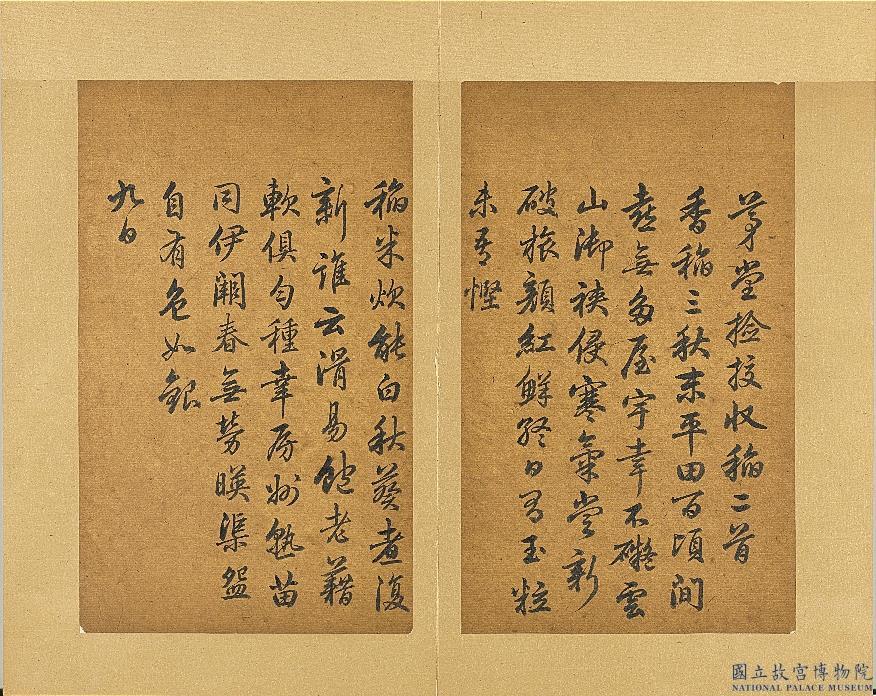 茅堂撿挍収稻二首
香稻三秋末平田百頃間
喜無多屋宇幸不礙雲
山御裌侵寒氣嘗新
破旅顏紅鮮終日有玉粒
未吾慳
稻米炊能白秋葵煮復
新誰云滑易飽老藉
軟俱勻種幸房州熟苗
同伊闕春無勞暎渠盌
自有色如銀
九日
國立故宮博物院
NATIONAL PALACE MUSEUM